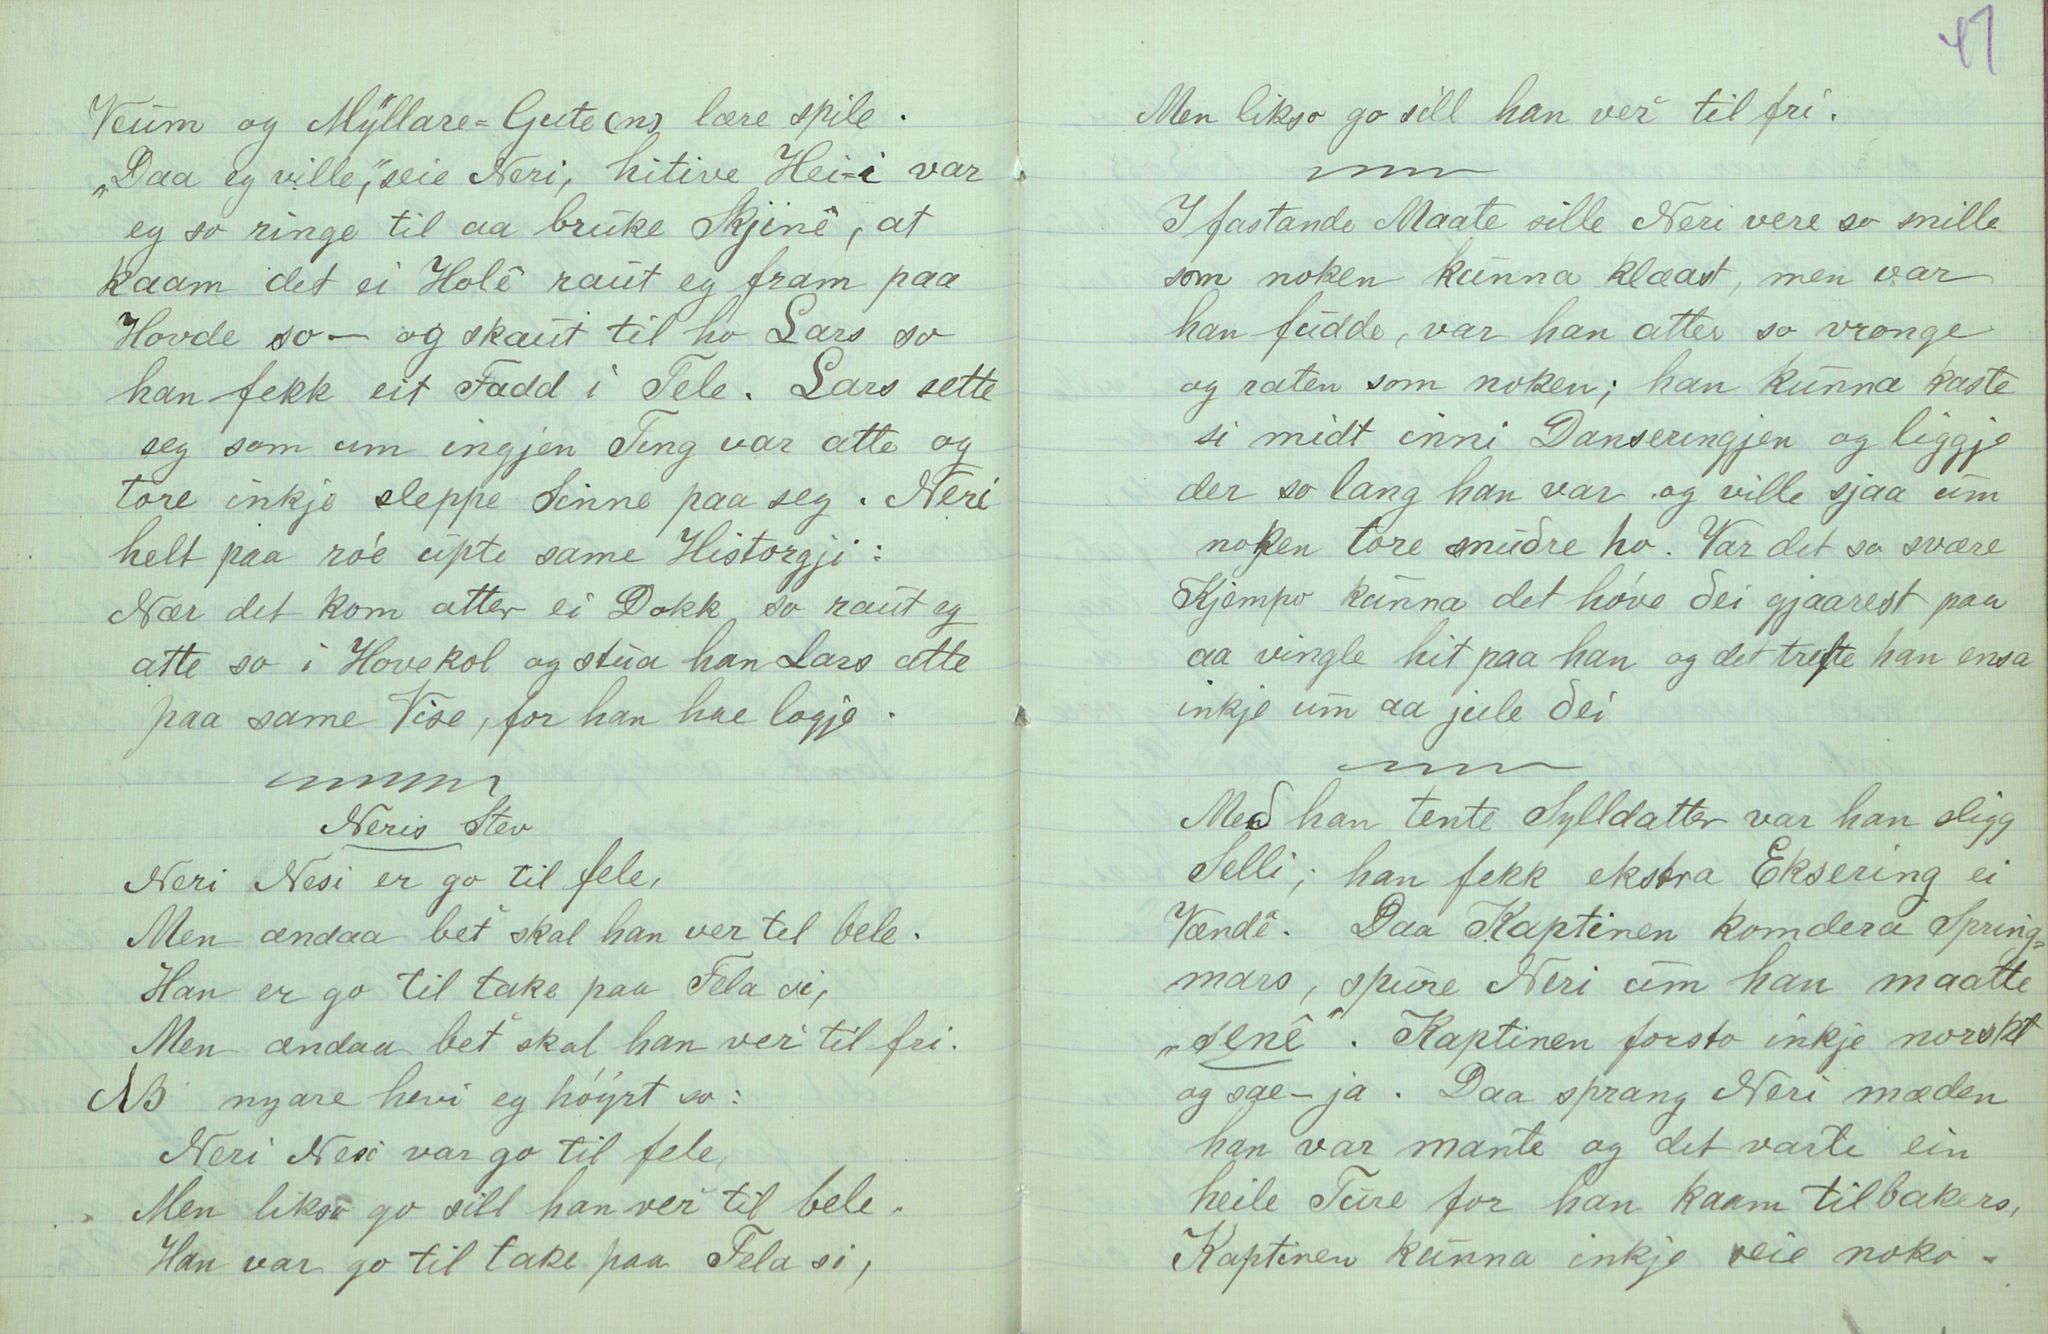 Veum og Mÿllare-Gute(n) lære spile.
„Daa eg ville," seie Neri, hitive Hei-i var
eg so ringe til aa bruke Skjinê, at
kaam det ei Holê raut eg fram paa
Hovde so — og skaut til ho Lars so
han fekk eit Fadd i Tele. Lars sette
seg som um ingjen Ting var atte og
tore inkje sleppe Sinne paa seg. Neri
helt paa róe upte same Historgji:
Nær det kom atter ei Dokk so raut eg
atte so i Hovekol og stua han Lars atte
paa same Vise, for han hae logje.
Neris Stev
Neri Nesi er go til fele,
Men ændaa bet skal han ver tel bele.
Han er go til take paa Fela si,
Men ændaa bet skal han ver til fri.
NB nyare hevi eg hóyrt so:
Neri Nesi var go til fele,
Men likso go sill han ver til bele.
Han var go til take paa Fela si,
47
Men likso go sill han ver til fri.
I fastande Maate sille Neri vere so snille
som noken kunna klæast, men var
han fudde, var han atter so vronge
og raten som noken; han kunna kaste
si midt inni Danseringjen og liggje
der so lang han var og ville sjaa um
noken tore snuðre ho. Var det so svære
Kjempo kunna det hóve ðei gjaarest paa
aa vingle hit paa han og det trefte han ensa
inkje um aa jule ðei
Með han tente Sylldatter var han sligg
Selli; han fekk ekstra Eksering ei
Vændê. Daa Kaptinen komdera Spring-
mars, spure Neri um han maatte
„senê". Kaptinen forsto inkje norskt
og sae — ja. Daa sprang Neri mæden
han var mante og det varte ein
heile Ture for han kaam tilbakers,
Kaptinen kunna inkje seie noko.